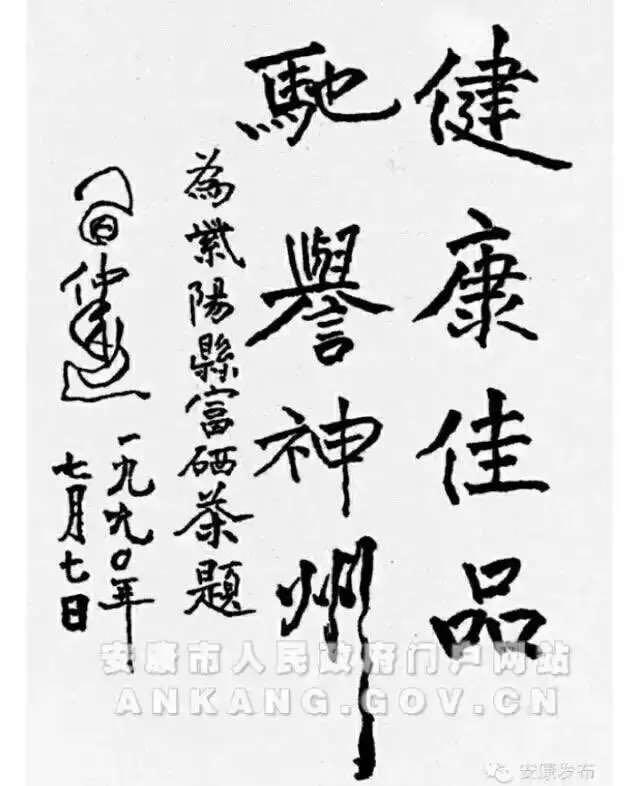 健康佳品
馳譽神州
為紫陽縣富硒茶題
一九九〇年
七月七日
安康市人民政府门户网站
ANKANG.GOV.CN
安康发布